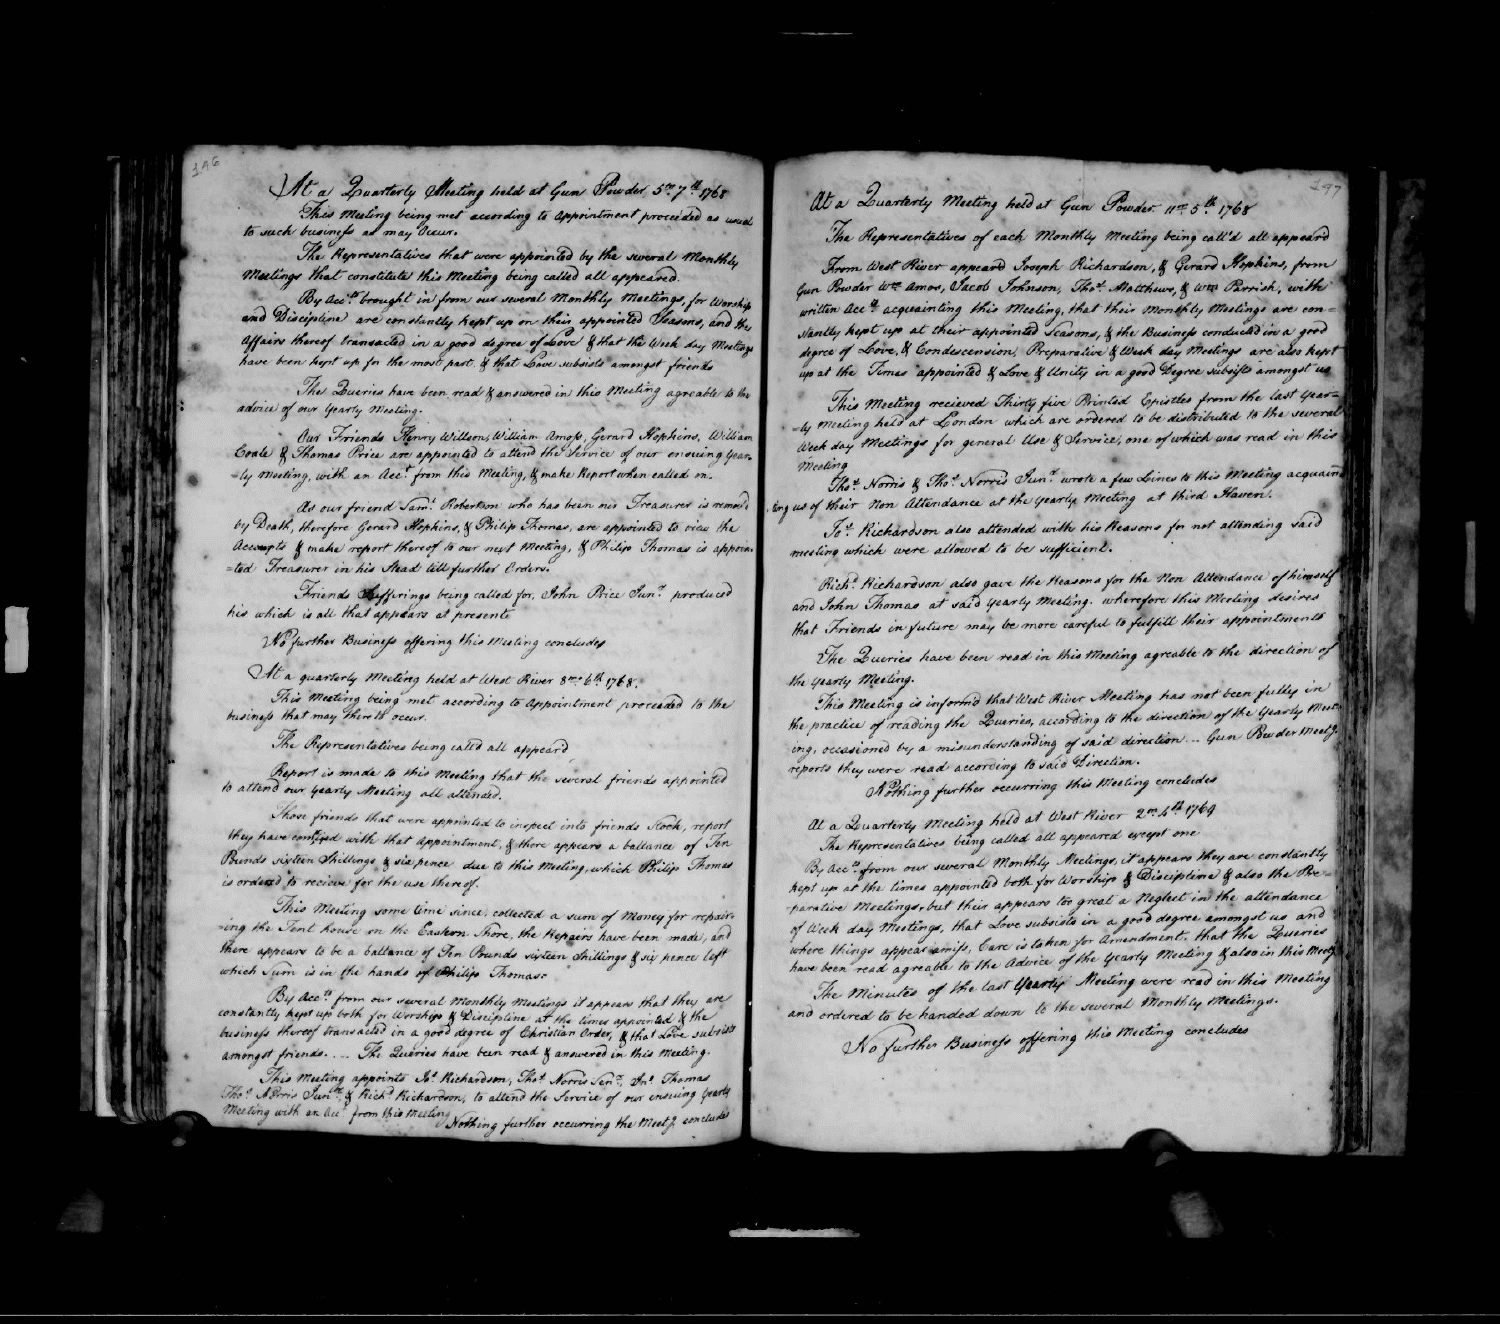 196
At a Quarterly Meeting held at Gun Powder 5mo 7th 1768
This Meeting being met according to appointment proceeded as usual
to such business as may Occur.
The Representatives that were appointed by the several Monthly
Meetings that constitute this Meeting being called all appeared.
By Accts brought in from our several Monthly Meetings, for Worship
and Discipline are constantly kept up on their appointed Seasons, and the
affairs thereof transacted in a good degree of Love & that the Week day Meetings
have been kept up for the most part, & that Love subsists amongst friends
The Queries have been read & answered in this Meeting agreable to the
advice of our Yearly Meeting.
Our Friends Henry Willson, William Amoss, Gerard Hopkins, William
Coale & Thomas Price are appointed to attend the Service of our ensuing Year-
=ly Meeting, with an Acct from this Meeting, & make Report when called on.
As our friend Saml Robertson who has been our Treasurer is remov'd
by Death, therefore Gerard Hopkins, & Philip Thomas, are appointed to view the
Accompts & make report thereof to our next Meeting, & Philip Thomas is appoin-
=ted Treasurer in his stead till further Orders.
Friends Sufferings being called for, John Price Junr produced
his which is all that appears at presente
No further Business offering this Meeting concludes
At a quarterly Meeting held at West River 8mo 6th 1768.
This Meeting being met according to Appointment proceeded to the
business that may thereto occur.
The Representatives being called all appeard
Report is made to this Meeting that the several friends appointed
to attend our Yearly Meeting all attended.
Those friends that were appointed to inspect into friends Stock, report
they have complyed with that appointment, & there appears a ballance of Ten
Pounds sixteen Shillings & sixpence due to this Meeting, which Philip Thomas
is ordered to recieve for the use thereof.
This Meeting some time since, collected a sum of Money for repair-
=ing the Tent house on the Eastern Shore, the Repairs have been made, and
there appears to be a ballance of Ten Pounds sixteen Shillings & six pence left
which Sum is in the hands of Philip Thomas
By Accts from our several Monthly Meetings it appears that they are
constantly kept up both for Worship & Discipline at the times appointed & the
business thereof transacted in a good degree of Christian Order, & that Love subsists
amongst friends. ... The Queries have been read & answered in this Meeting.
This Meeting appoints Jos Richardson, Thos Norris Senr, Jno Thomas
Thos Norris Junr, & Richd Richardson, to attend the Service of our ensuing Yearly
Meeting with an Acct from this Meeting
Nothing further occurring the Meetg concludes
197
At a Quarterly Meeting held at Gun Powder 11mo 5th 1768
The Representatives of each Monthly Meeting being call'd all appeard
From West River appeard Joseph Richardson, & Gerard Hopkins, from
Gun Powder Wm Amos, Jacob Johnson, Thos Matthews, & Wm Parrish, with
written Accts acquainting this Meeting, that their Monthly Meetings are con-
stantly kept up at their appointed seasons, & the Business conducted in a good
degree of Love, & Condescension, Preparative & Week day Meetings are also kept
up at the Times appointed & Love & Unity in a good Degree subsists amongst us
This Meeting recieved Thirty five Printed Epistles from the last Year-
=ly Meeting held at London which are ordered to be distributed to the several
Week day Meetings for general Use & Service, one of which was read in this
Meeting
Thos Norris & Thos Norris Junr wrote a few Lines to this Meeting acquain=
ting us of their Non Attendance at the Yearly Meeting at third Haven.
Jos Richardson also attended with his Reasons for not attending said
meeting which were allowed to be sufficient.
Richd Richardson also gave the Reasons for the Non Attendance of himself
and John Thomas at said Yearly Meeting. wherefore this Meeting desires
that Friends in future may be more careful to fulfill their appointments
The Queries have been read in this Meeting agreable to the direction of
the Yearly Meeting.
This Meeting is informd that West River Meeting has not been fully in
the practice of reading the Queries, according to the direction of the Yearly Meet-
ing, occasioned by a misunderstanding of said direction ... Gun Powder Meetg
reports they were read according to said Direction.
Nothing further occurring this Meeting concludes
At a Quarterly Meeting held at West River 2mo 4th 1769
The Representatives being called all appeared except one
By Accts from our several Monthly Meetings, it appears they are constantly
kept up at the times appointed both for Worship & Discipline & also the Pre=
parative Meetings, but their appears too great a Neglect in the attendance
of Week day Meetings, that Love subsists in a good degree amongst us and
where things appear amiss, Care is taken for Amendment. that the Queries
have been read agreable to the Advice of the Yearly Meeting & also in this Meetg
The Minutes of the last Yearly Meeting were read in this Meeting
and ordered to be handed down to the several Monthly Meetings.
No further Business offering this Meeting concludes